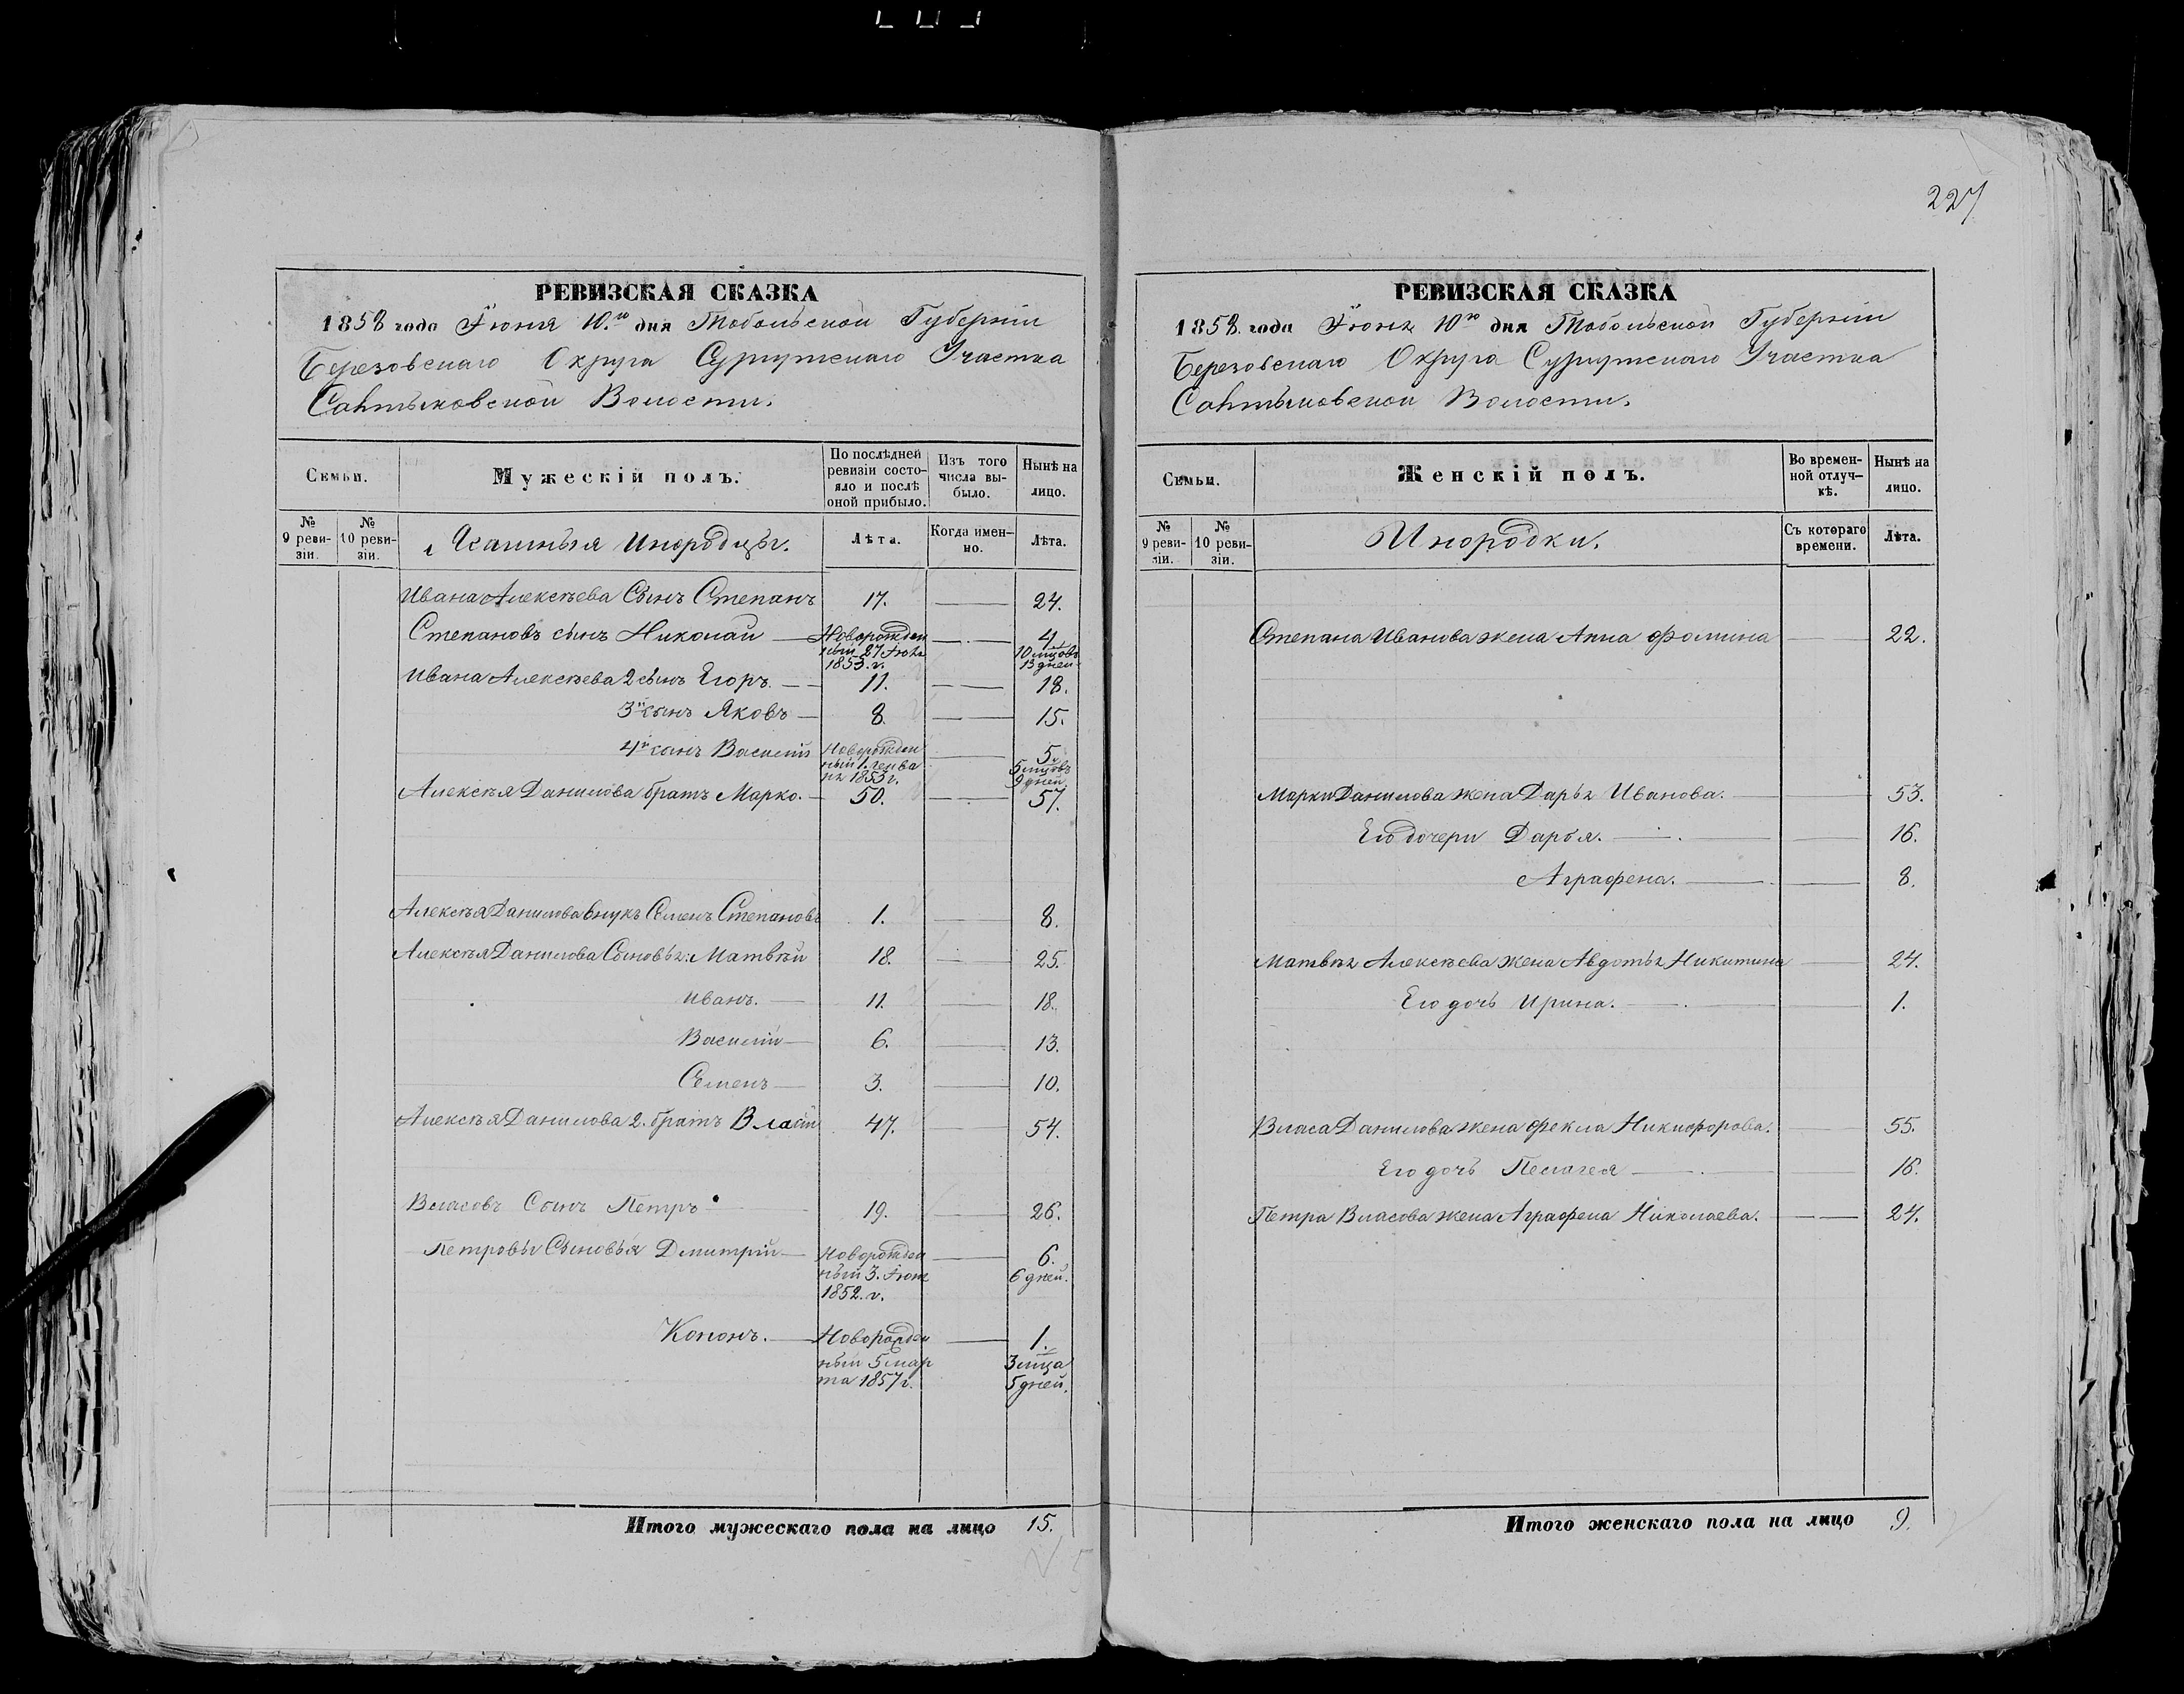 227
РЕВИЗСКАЯ СКАЗКА
1858 года Іюня 10.го дня Тобольской Губерніи
Березовскаго Округа Сургутскаго Участка
Салтыковской Волости.
Семьи.
Мужескій полъ.
По послѣдней ревизіи состояло и послѣ оной прибыло.
Изъ того числа выбыло.
Нынѣ на лицо.
№ 9 ревизіи.
№ 10 ревизіи.
Ясашныя Инородцы.
Лѣта.
Когда именно.
Лѣта.
Ивана Алексѣева Сынъ Степанъ 17. — 24.
Степановъ сынъ Николай — Новорожден — 4
ный 27 Іюля 10 мцовъ
1853. г. 13 дней
Ивана Алексѣева 2 сынъ Егоръ. — 11. — 18.
3й сынъ Яковъ — 8. — 15.
4й сынъ Василій Новорожден — 5
ный 1. генва 5 мцовъ
ря 1853 г. 9 дней
Алексѣя Данилова братъ Марко. — 50. — 57.
Алексѣя Данилова внукъ Семенъ Степановъ 1. — 8.
Алексѣя Данилова Сыновья: Матвѣй 18. — 25.
Иванъ. — 11. — 18.
Василій — 6. — 13.
Семенъ — 3. — 10.
Алексѣя Данилова 2. братъ Власій 47. — 54.
Власовъ Сынъ Петръ 19. — 26.
Петровы Сыновья Дмитрій — Новорожден — 6.
ный 3. Іюня 6 дней.
1852. г.
Кононъ. — Новорожден — 1.
ный 5 мар 3 мца
та 1857 г. 5 дней.
Итого мужескаго пола на лицо 15.
РЕВИЗСКАЯ СКАЗКА
1858. года Іюня 10го дня Тобольской Губерніи
Березовскаго Округа Сургутскаго Участка
Салтыковской Волости.
Семьи.
Женскій полъ.
Во временной отлучкѣ.
Нынѣ на лицо.
№ 9 ревизіи.
№ 10 ревизіи.
Инородки.
Съ котораго времени.
Лѣта.
Степана Иванова жена Анна Фомина — 22.
Марки Данилова жена Дарья Иванова. — 53.
Его дочери Дарья. — 16.
Аграфена. — 8.
Матвѣя Алексѣева жена Авдотья Никитина — 24.
Его дочь Ирина. — 1.
Власа Данилова жена Фекла Никифорова. — 55.
Его дочь Пелагея — 16.
Петра Власова жена Аграфена Николаева. — 24.
Итого женскаго пола на лицо 9.